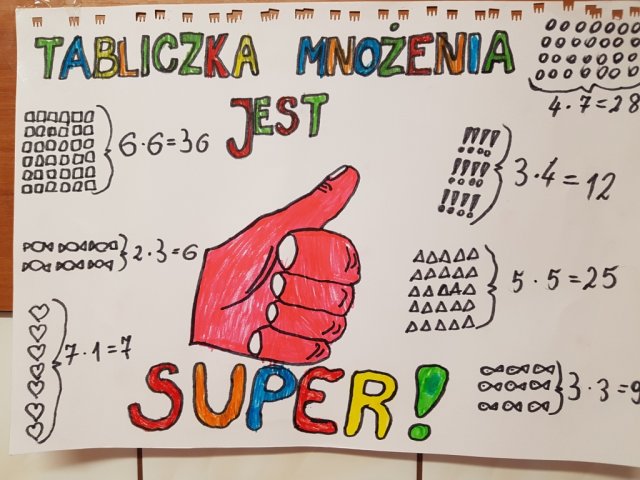 TABLICZKA MNOŻENIA
JEST
4·7=28
6·6=36
3·4=12
2·3=6
5·5=25
7·1=7
3·3=9
SUPER!